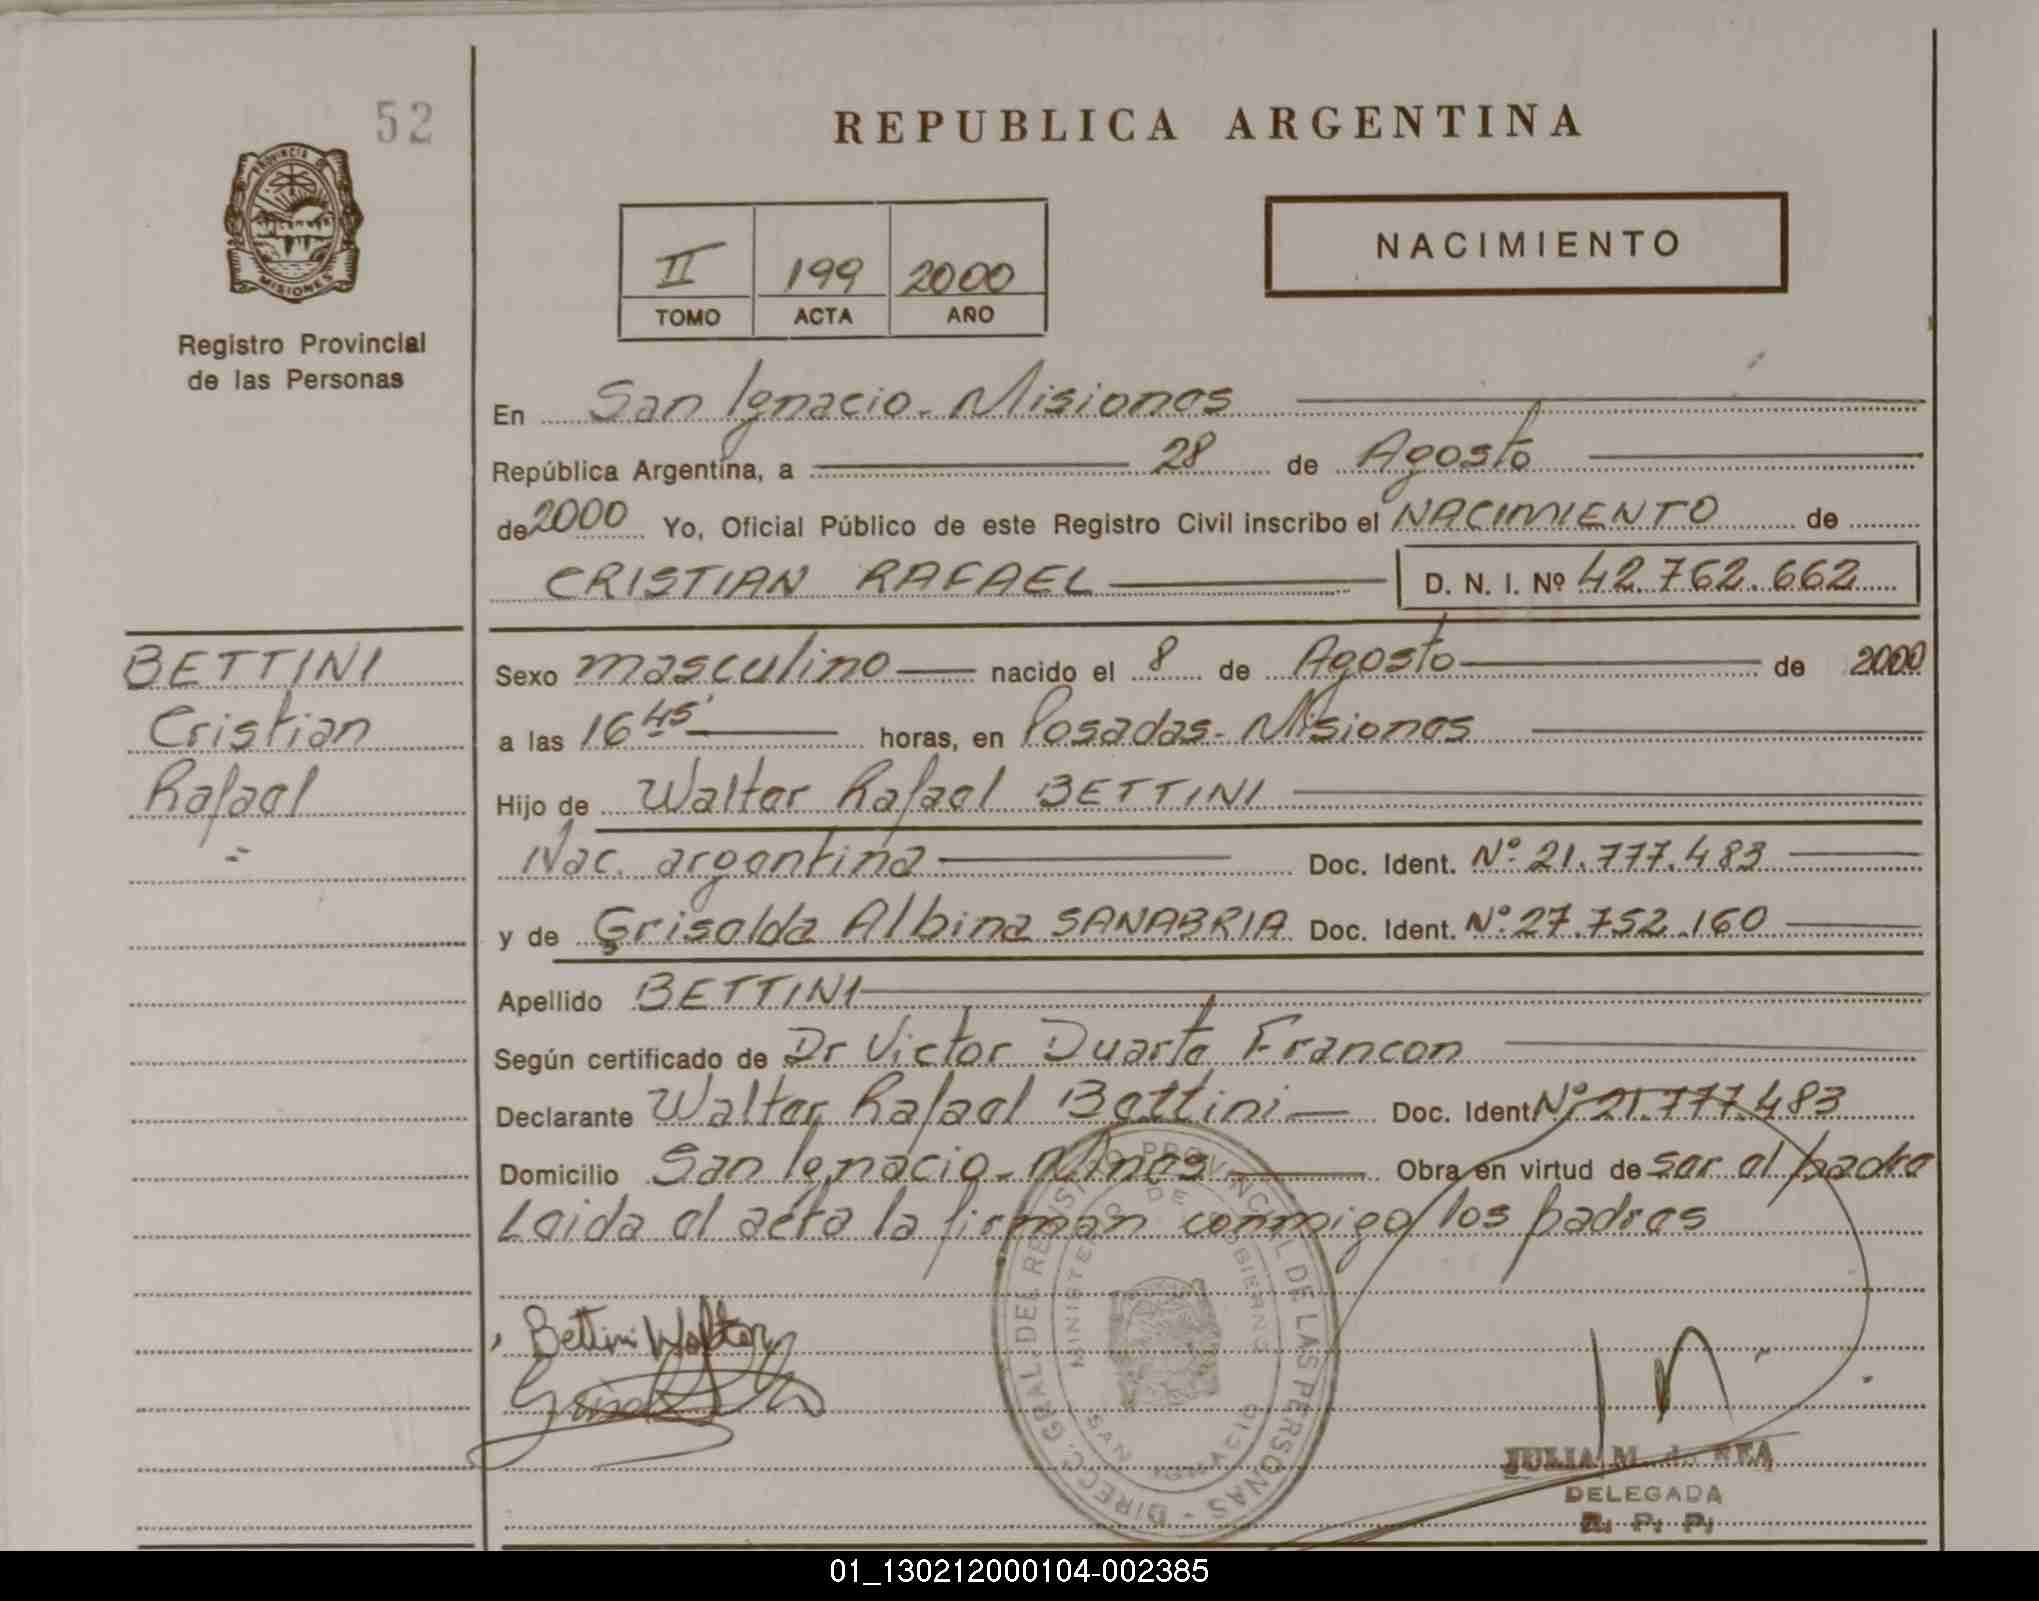 52
REPUBLICA ARGENTINA
PROVINCIA DE
MISIONES
Registro Provincial
de las Personas
NACIMIENTO
II 199 2000
TOMO ACTA AÑO
En San Ignacio - Misiones
República Argentina, a 28 de Agosto
de 2000 Yo, Oficial Público de este Registro Civil inscribo el NACIMIENTO de
CRISTIAN RAFAEL D. N. I. Nº 42.762.662
BETTINI
Cristian
Rafael
Sexo masculino nacido el 8 de Agosto de 2000
a las 16 45' horas, en Posadas - Misiones
Hijo de Walter Rafael BETTINI
Nac. argentina Doc. Ident. Nº 21.777.483
y de Griselda Albina SANABRIA Doc. Ident. Nº 27.752.160
Apellido BETTINI
Según certificado de Dr Victor Duarte Francon
Declarante Walter Rafael Bettini Doc. Ident Nº 21.777.483
Domicilio San Ignacio - Mnes Obra en virtud de ser el padre
Leida el acta la firman conmigo los padres
Bettini Walter
DIRECC. GRAL. DEL REGISTRO PROVINCIAL DE LAS PERSONAS
MINISTERIO DE GOBIERNO
SAN IGNACIO
JULIA M. de REA
DELEGADA
R. P. P.
01_130212000104-002385